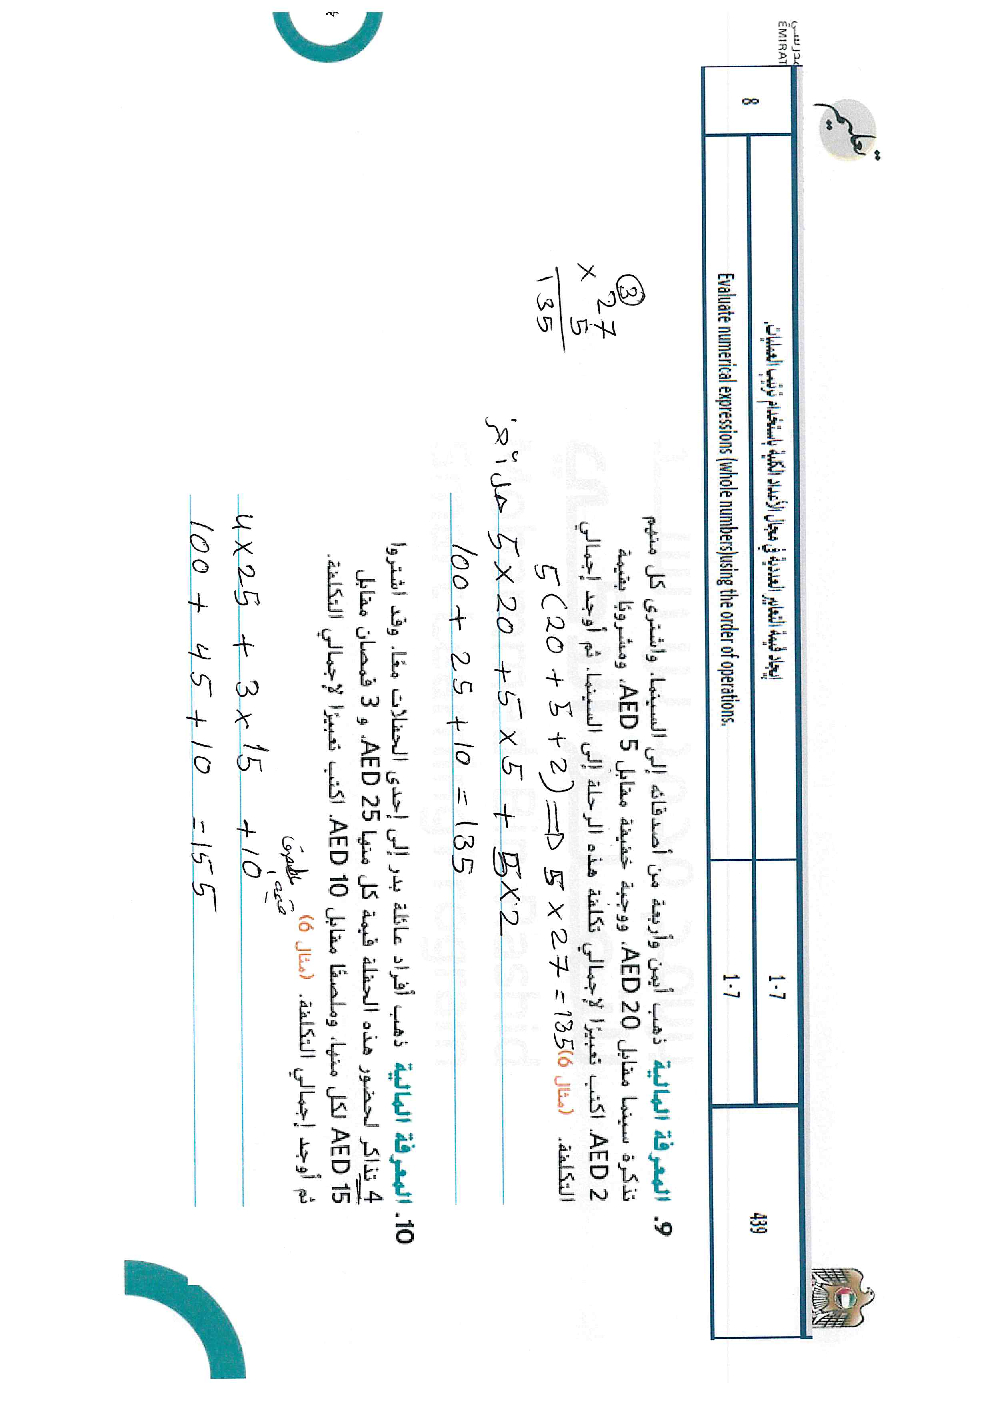 مدرسي
EMIRAT
تعليم
8
إيجاد قيمة التعابير العددية في مجال الأعداد الكلية باستخدام ترتيب العمليات.
Evaluate numerical expressions (whole numbers)using the order of operations.
1-7
1-7
439
9. المعرفة المالية ذهب أيمن وأربعة من أصدقائه إلى السينما. واشترى كل منهم
تذكرة سينما مقابل AED 20، ووجبة خفيفة مقابل AED 5، ومشروبًا بقيمة
AED 2. اكتب تعبيرًا لإجمالي تكلفة هذه الرحلة إلى السينما. ثم أوجد إجمالي
التكلفة. (مثال 6)
5(20+5+2)⇒ 5×27=135
③
27
× 5
135
حل آخر 5×20+5×5+5×2
100+25+10=135
10. المعرفة المالية ذهب أفراد عائلة بدر إلى إحدى الحفلات معًا. وقد اشتروا
4 تذاكر لحضور هذه الحفلة قيمة كل منها AED 25، و 3 قمصان مقابل
AED 15 لكل منها، وملصقًا مقابل AED 10. اكتب تعبيرًا لإجمالي التكلفة.
ثم أوجد إجمالي التكلفة. (مثال 6)
قيمة الملصق
4×25+3×15+10
100+45+10=155